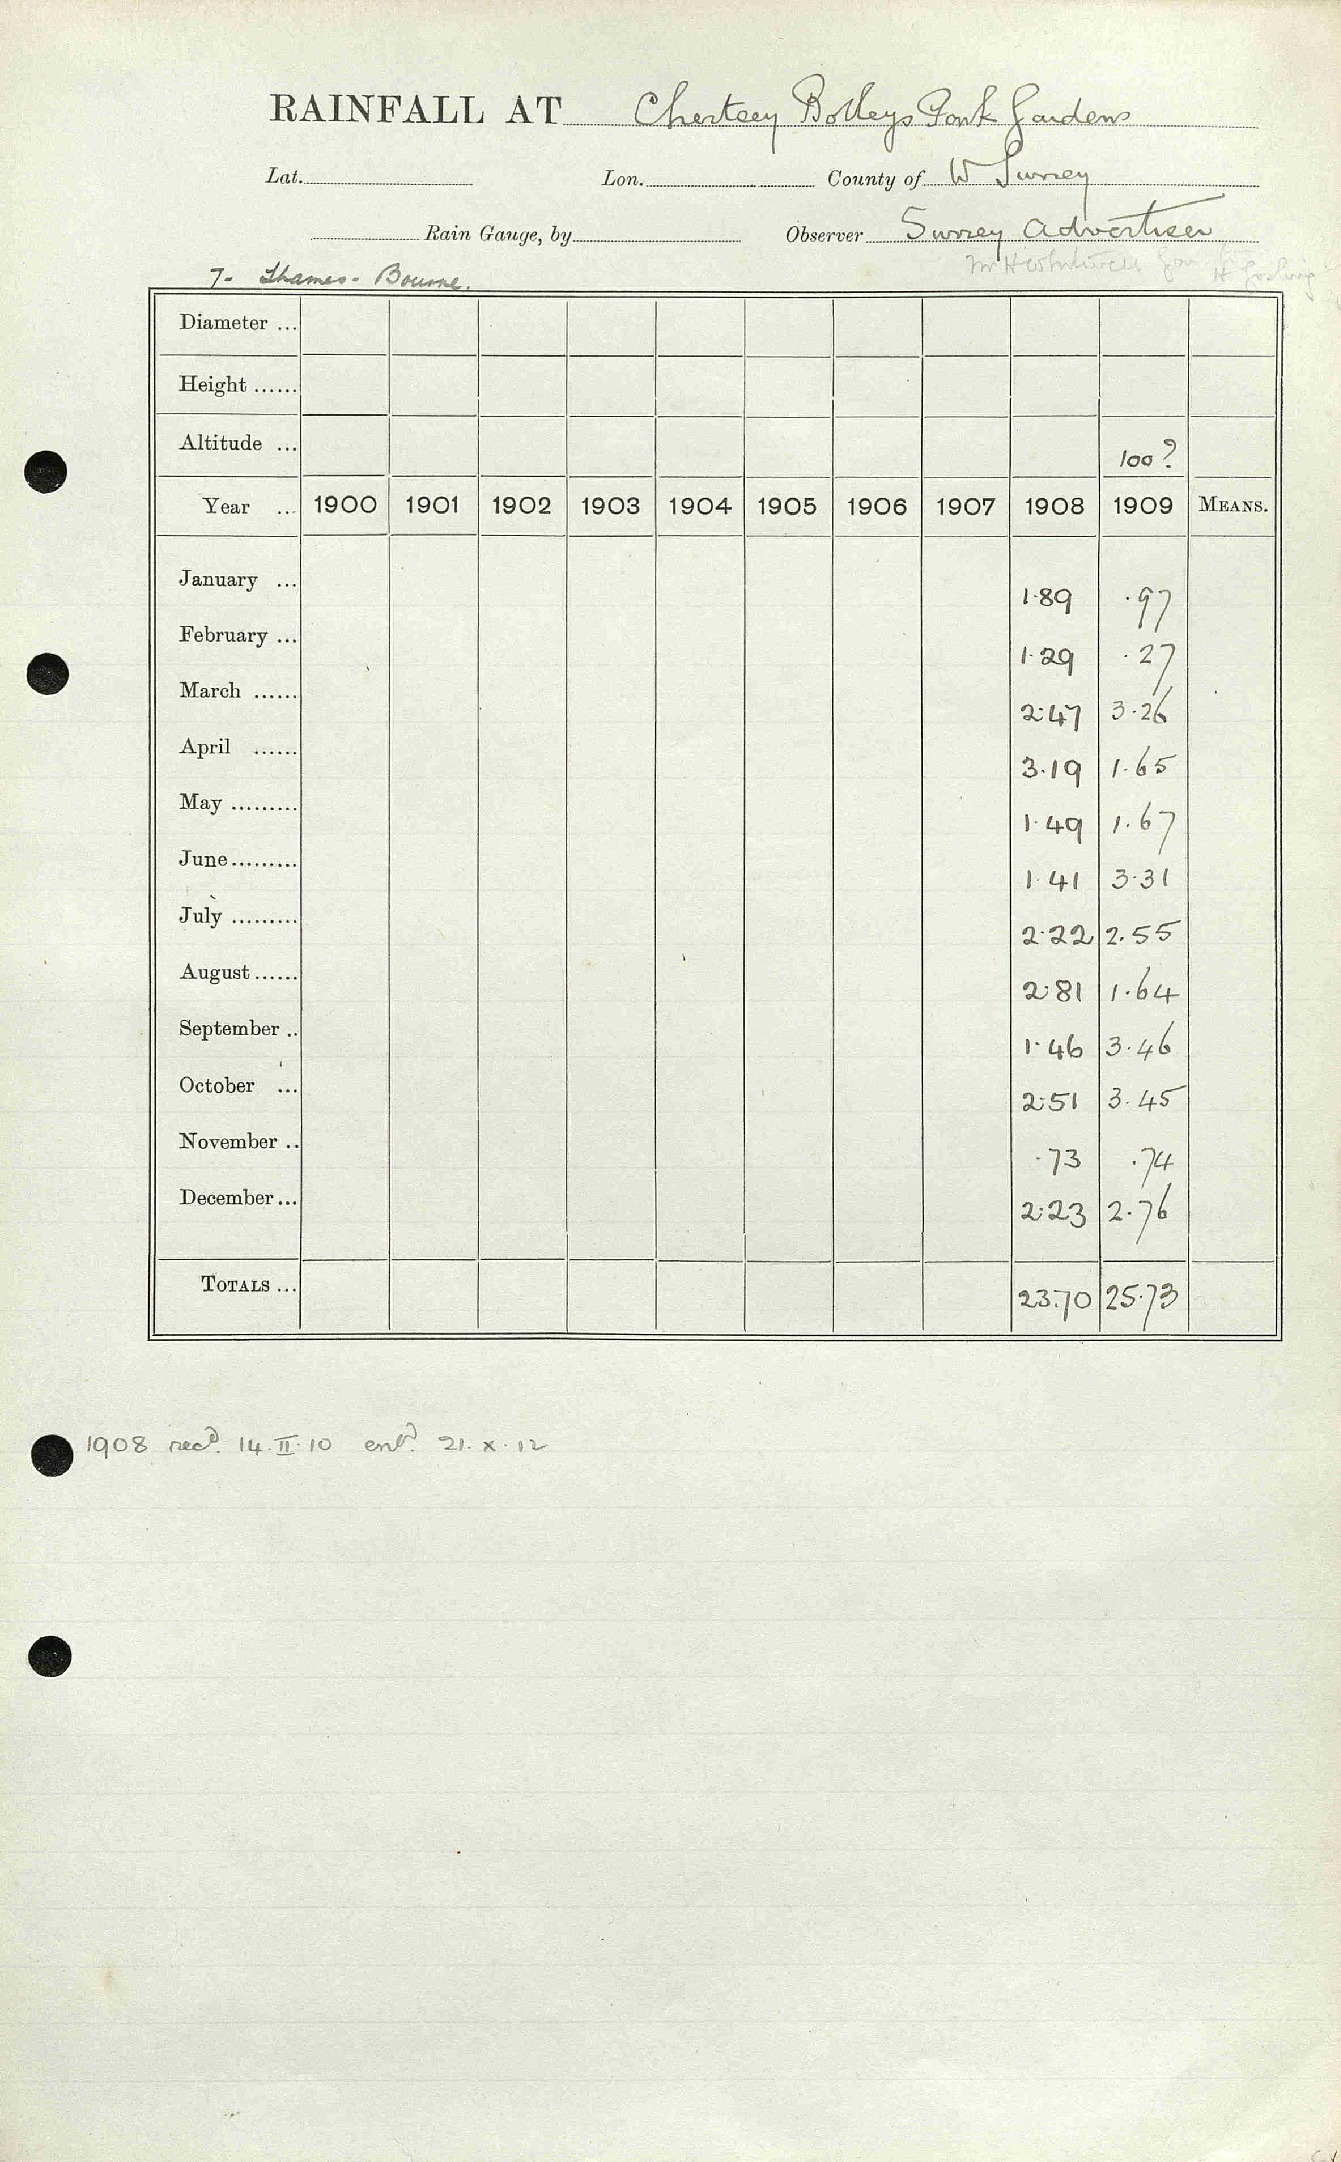 RAINFALL AT Chertsey Botleys Park Gardens
Lat. Lon. County of W Surrey
Rain Gauge, by Observer Surrey Advertiser
7- Thames - Bourne.
Diameter ...
Height ......
Altitude ... 100?
Year ... 1900 1901 1902 1903 1904 1905 1906 1907 1908 1909 MEANS.
January ... 1.89 .97
February ... 1.29 .27
March ...... 2.47 3.26
April ...... 3.19 1.65
May ......... 1.49 1.67
June ......... 1.41 3.31
July ......... 2.22 2.55
August ...... 2.81 1.64
September .. 1.46 3.46
October ... 2.51 3.45
November .. .73 .74
December ... 2.23 2.76
TOTALS ... 23.70 25.73
1908 recd. 14.II.10 entd. 21.X.12